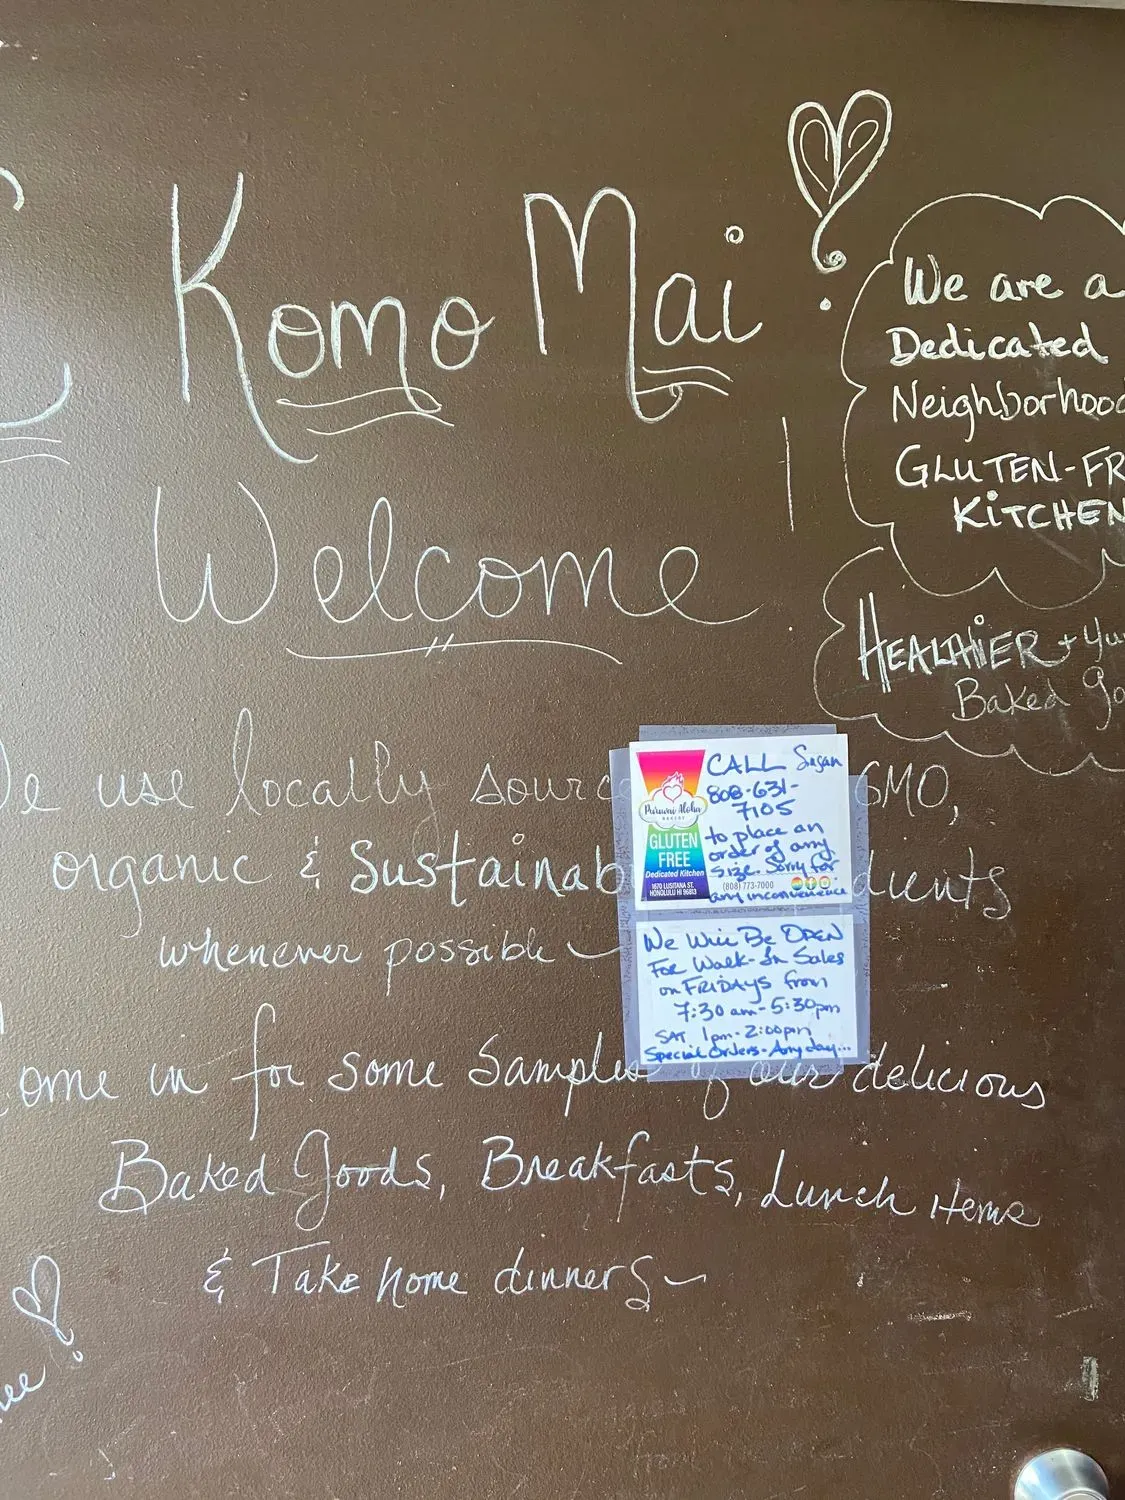 E Komo Mai
We are a
Dedicated
Neighborhood
GLUTEN-FR
KITCHEN
Welcome
HEALTHIER + Yu
Baked Go
We use locally sourc
GMO,
organic & Sustainab
dients
whenever possible
CALL Susan
808-631-
7105
to place an
order of any
size. Sorry for
any inconvenience
Puruwai Aloha
BAKERY
GLUTEN
FREE
Dedicated Kitchen
1670 LUSITANA ST.
HONOLULU HI 96813
(808) 773-7000
We Will Be OPEN
For Walk-In Sales
on FRIDAYS from
7:30 am - 5:30pm
SAT 1pm - 2:00pm
Special Orders - Any day...
ome in for some Samples of our delicious
Baked Goods, Breakfasts, Lunch items
& Take home dinners